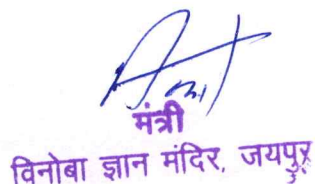 मंत्री
विनोबा ज्ञान मंदिर, जयपुर